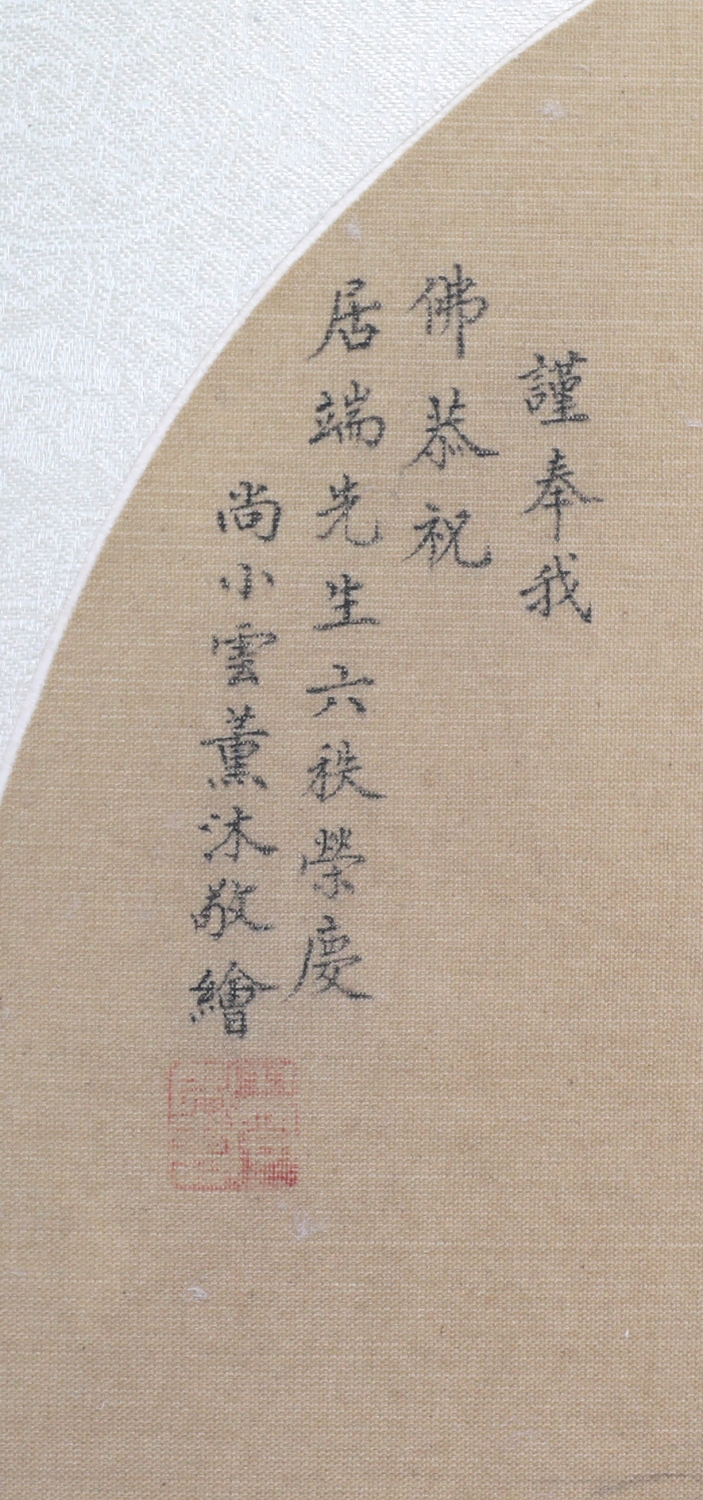 謹奉我
佛恭祝
居端先生六秩榮慶
尚小雲薰沐敬繪